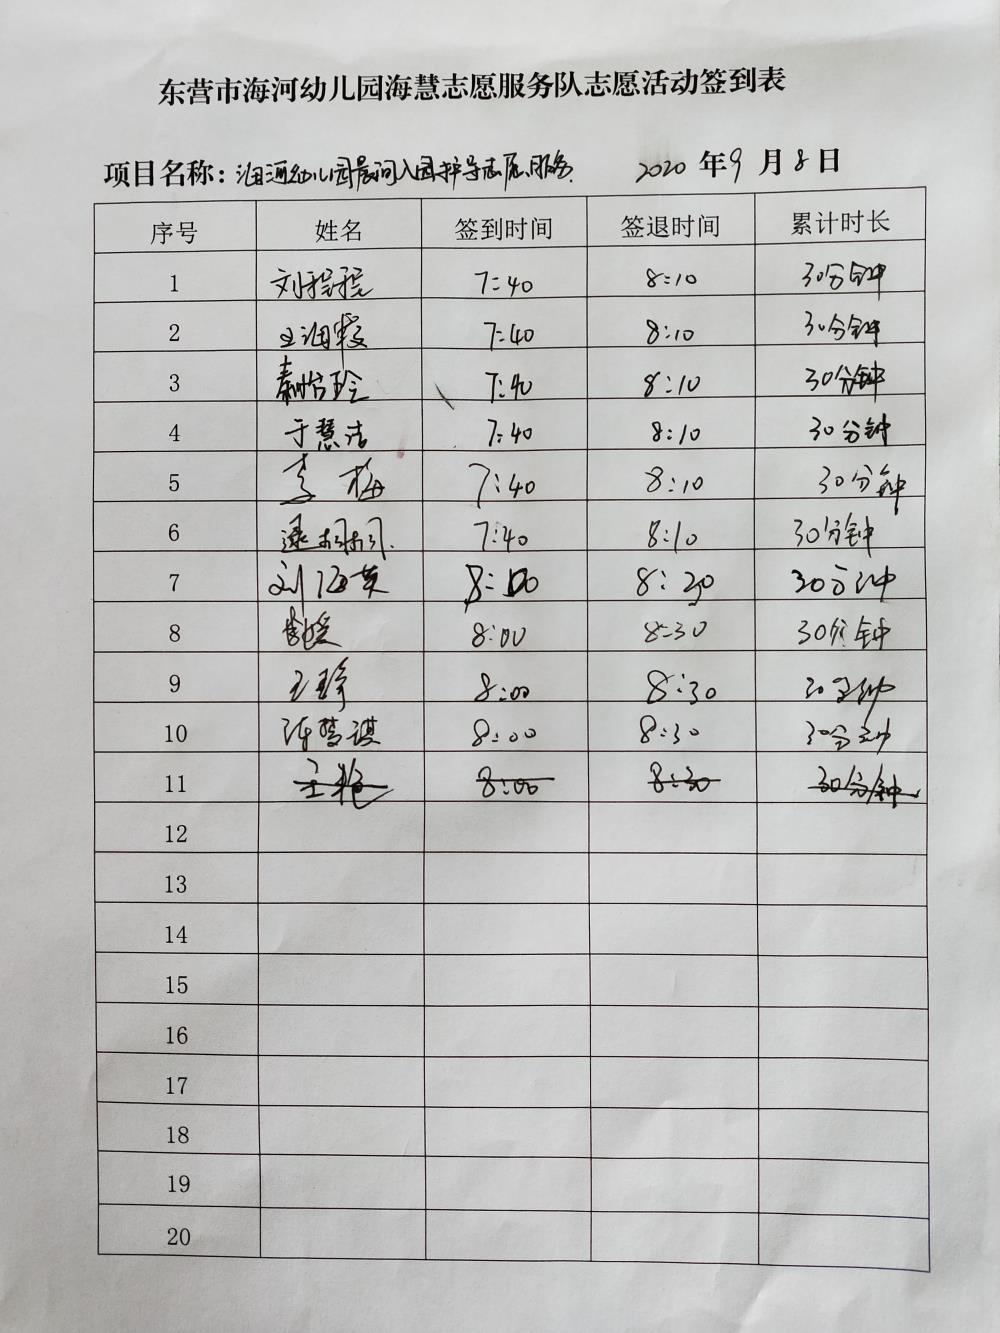 东营市海河幼儿园海慧志愿服务队志愿活动签到表
项目名称：海河幼儿园晨间入园护导志愿服务 2020 年 9 月 8 日
序号 姓名 签到时间 签退时间 累计时长
1 刘程程 7:40 8:10 30分钟
2 王海霞 7:40 8:10 30分钟
3 秦怡玲 7:40 8:10 30分钟
4 于慧洁 7:40 8:10 30分钟
5 李梅 7:40 8:10 30分钟
6 逯桐桐 7:40 8:10 30分钟
7 刘海英 8:00 8:30 30分钟
8 8:00 8:30 30分钟
9 8:00 8:30 30分钟
10 8:00 8:30 30分钟
11 王艳 8:00 8:30 30分钟
12
13
14
15
16
17
18
19
20